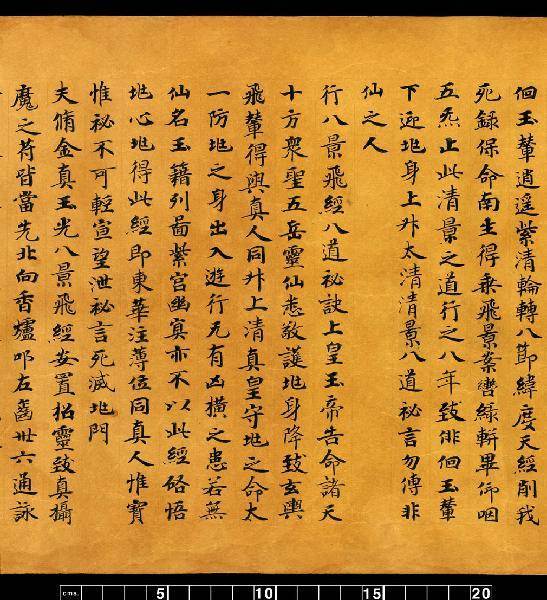 佪玉輦逍遥紫清輪轉八節緯度天經削我
死録保命南生得乗飛景案轡綠軿畢仰咽
五炁止此清景之道行之八年致俳佪玉輦
下迎地身上升太清清景八道祕言勿傳非
仙之人
行八景飛經八道祕訣上皇玉帝告命諸天
十方衆聖五岳靈仙悉敬護地身降致玄輿
飛輦得與真人同升上清真皇守地之命太
一防地之身出入遊行无有凶横之患若無
仙名玉籍列啚紫宫幽冥亦不以此經啓悟
地心地得此經即東華注尊位同真人惟寶
惟祕不可輕宣妄泄祕言死滅地門
夫脩金真玉光八景飛經安置招靈致真攝
魔之符皆當先北向香爐叩左齒卅六通詠